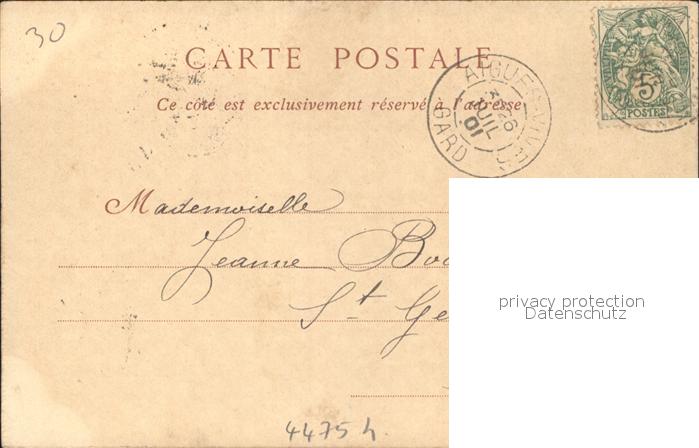 30
CARTE POSTALE
Ce côté est exclusivement réservé à l'adresse
AIGUES-VIVES
26
JUIL
01
GARD
5
POSTES
Mademoiselle
Jeanne
St Ge
privacy protection
Datenschutz
4475 h.